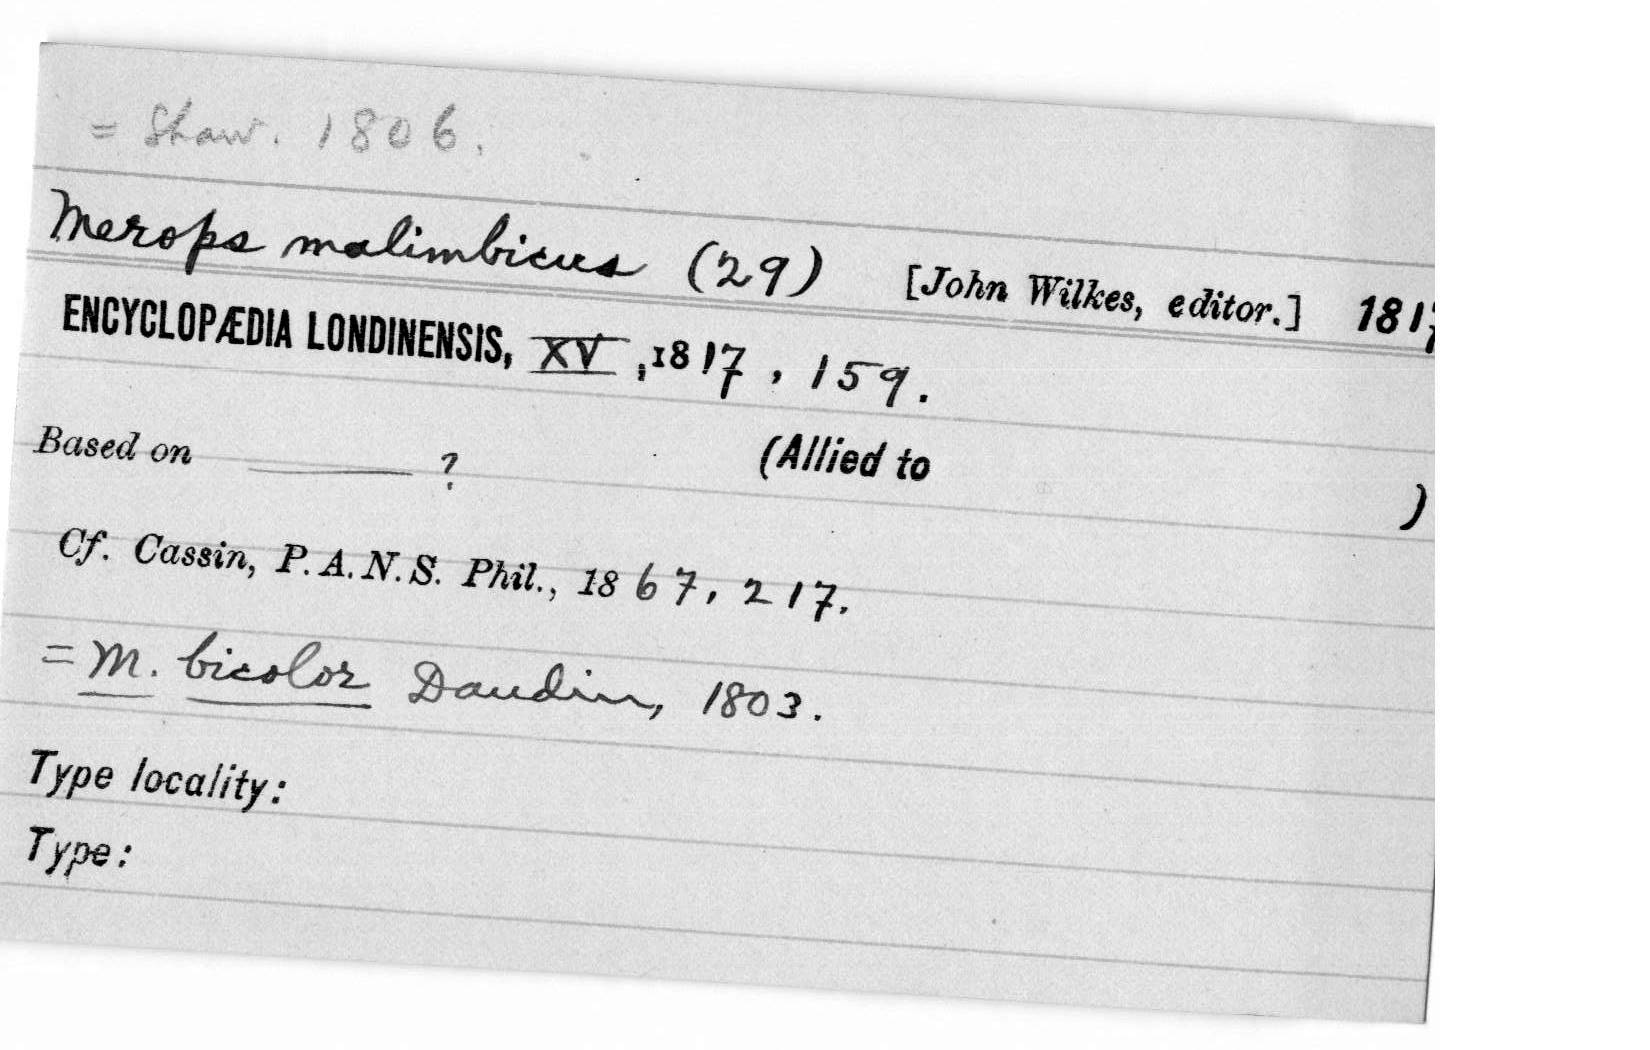 = Shaw. 1806.
Merops malimbicus (29) [John Wilkes, editor.] 1817
ENCYCLOPÆDIA LONDINENSIS, XV, 1817, 159.
Based on ——— ? (Allied to )
Cf. Cassin, P. A. N. S. Phil., 1867, 217.
= M. bicolor Daudin, 1803.
Type locality:
Type: